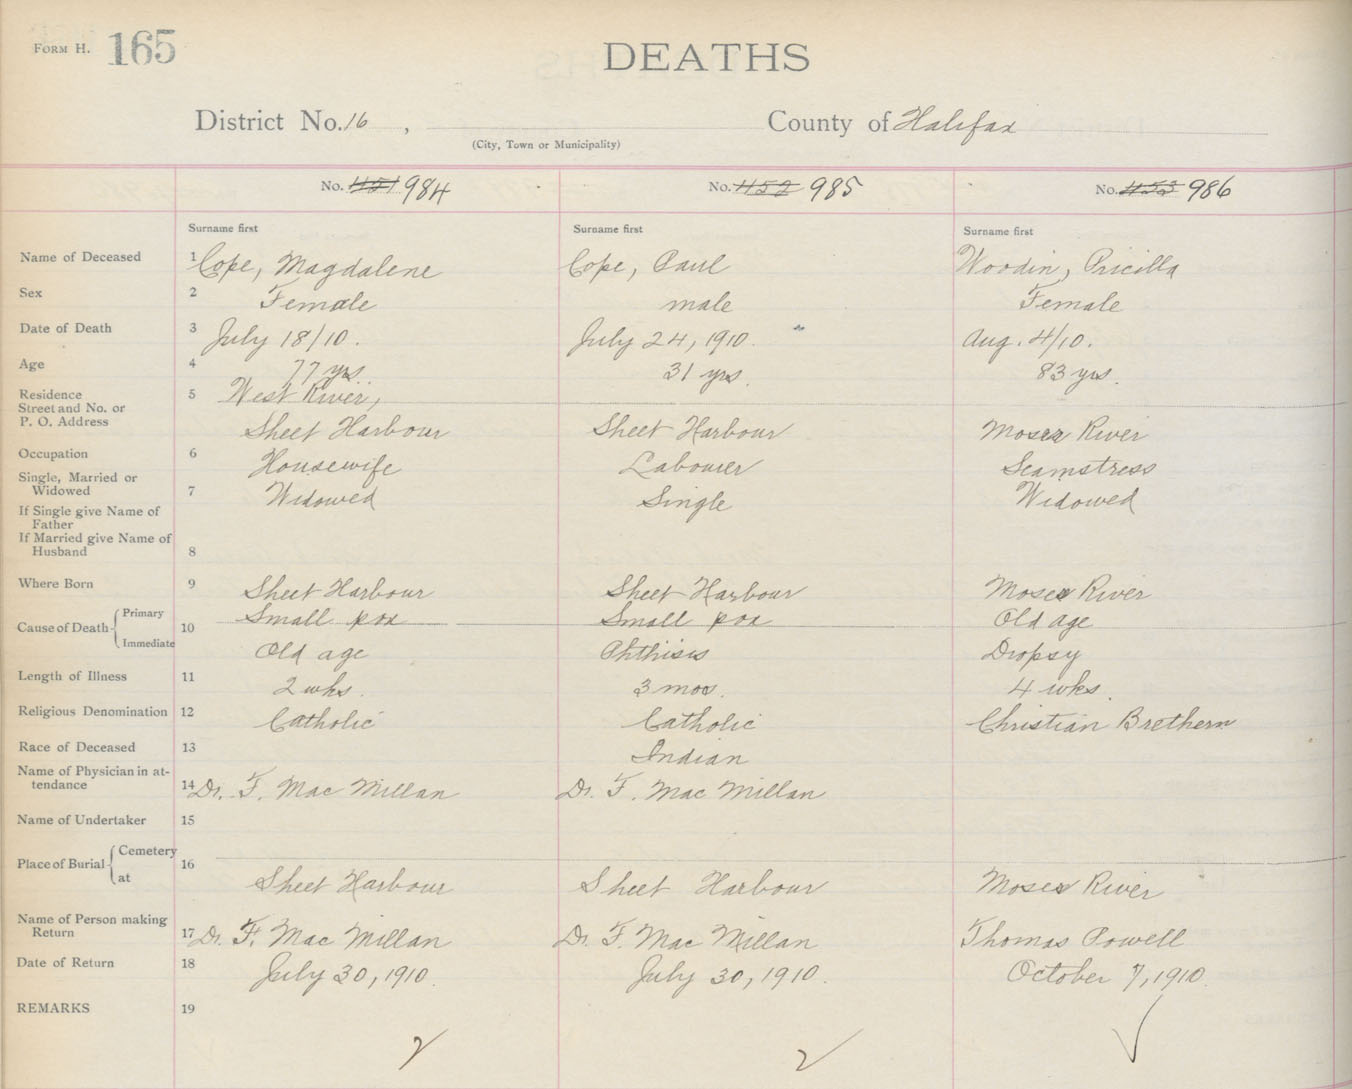 FORM H. 165
DEATHS
District No. 16 , County of Halifax
(City, Town or Municipality)
No. 451 984 No. 452 985 No. 453 986
Surname first Surname first Surname first
Name of Deceased 1 Cope, Magdalene Cope, Paul Woodin, Pricilla
Sex 2 Female male Female
Date of Death 3 July 18/10. July 24, 1910. Aug. 4/10.
Age 4 77 yrs. 31 yrs. 83 yrs.
Residence 5 West River,
Street and No. or
P. O. Address Sheet Harbour Sheet Harbour Moser River
Occupation 6 Housewife Labourer Seamstress
Single, Married or
Widowed 7 Widowed Single Widowed
If Single give Name of
Father
If Married give Name of
Husband 8
Where Born 9 Sheet Harbour Sheet Harbour Moser River
Cause of Death 10 Primary Small pox Small pox Old age
Immediate Old age Phthisis Dropsy
Length of Illness 11 2 wks. 3 mos. 4 wks.
Religious Denomination 12 Catholic Catholic Christian Brethern
Race of Deceased 13 Indian
Name of Physician in at-
tendance 14 Dr. F. Mac Millan Dr. F. Mac Millan
Name of Undertaker 15
Place of Burial 16 Cemetery
at Sheet Harbour Sheet Harbour Moser River
Name of Person making
Return 17 Dr. F. Mac Millan Dr. F. Mac Millan Thomas Powell
Date of Return 18 July 30, 1910. July 30, 1910. October 7, 1910.
REMARKS 19